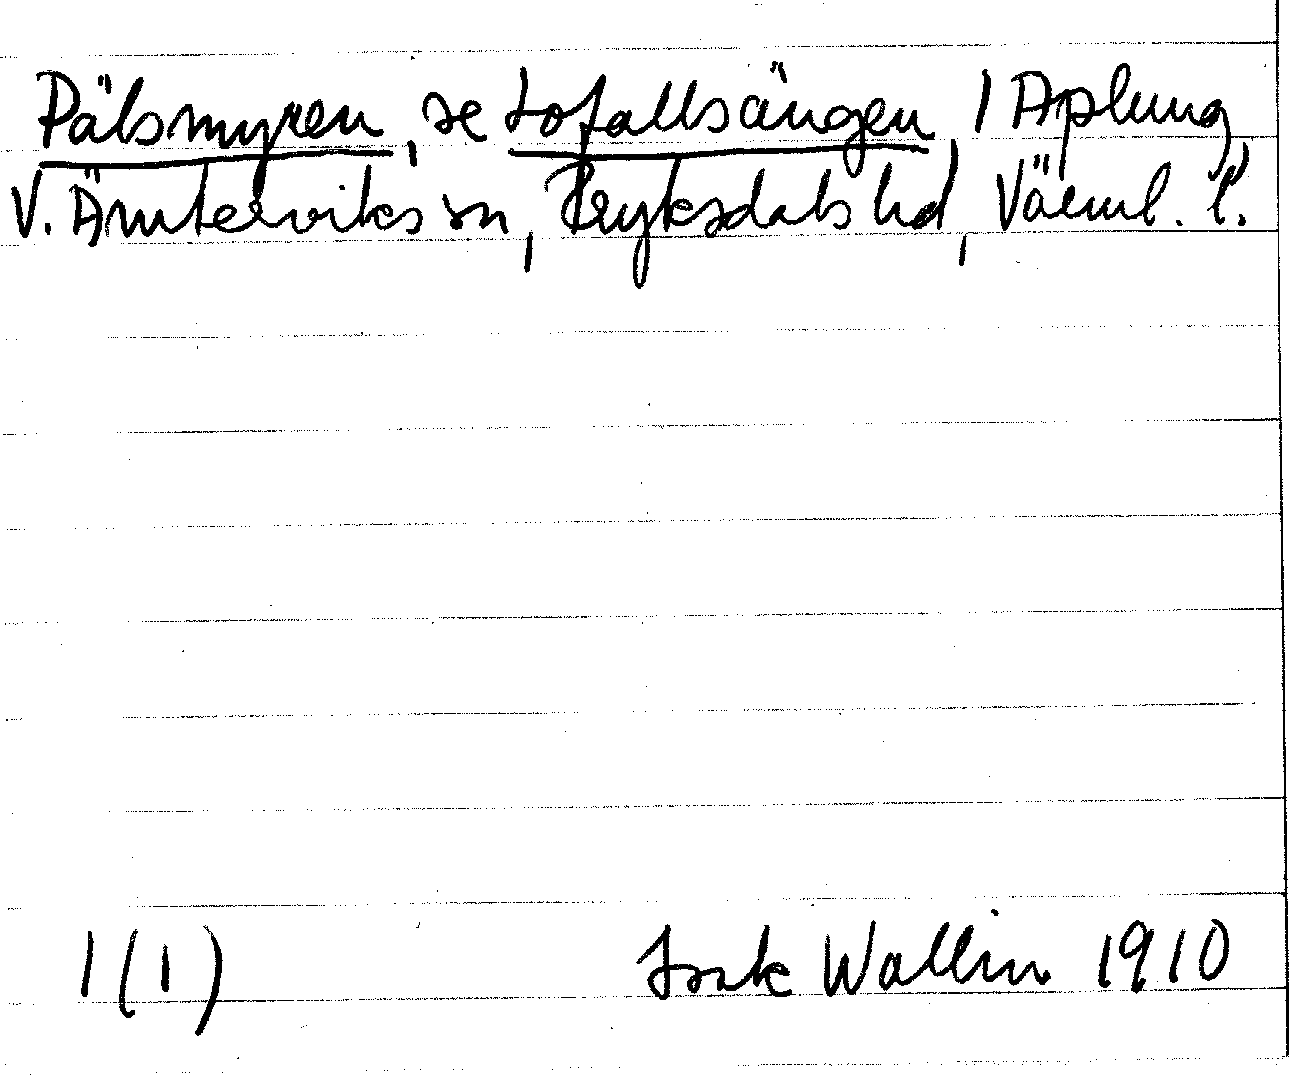 Pälsmyren, se tofallsängen, 1 Aplung,
V. Ämterviks sn, Fryksdals hd, Värml. l.
1(1) Isak Wallin 1910